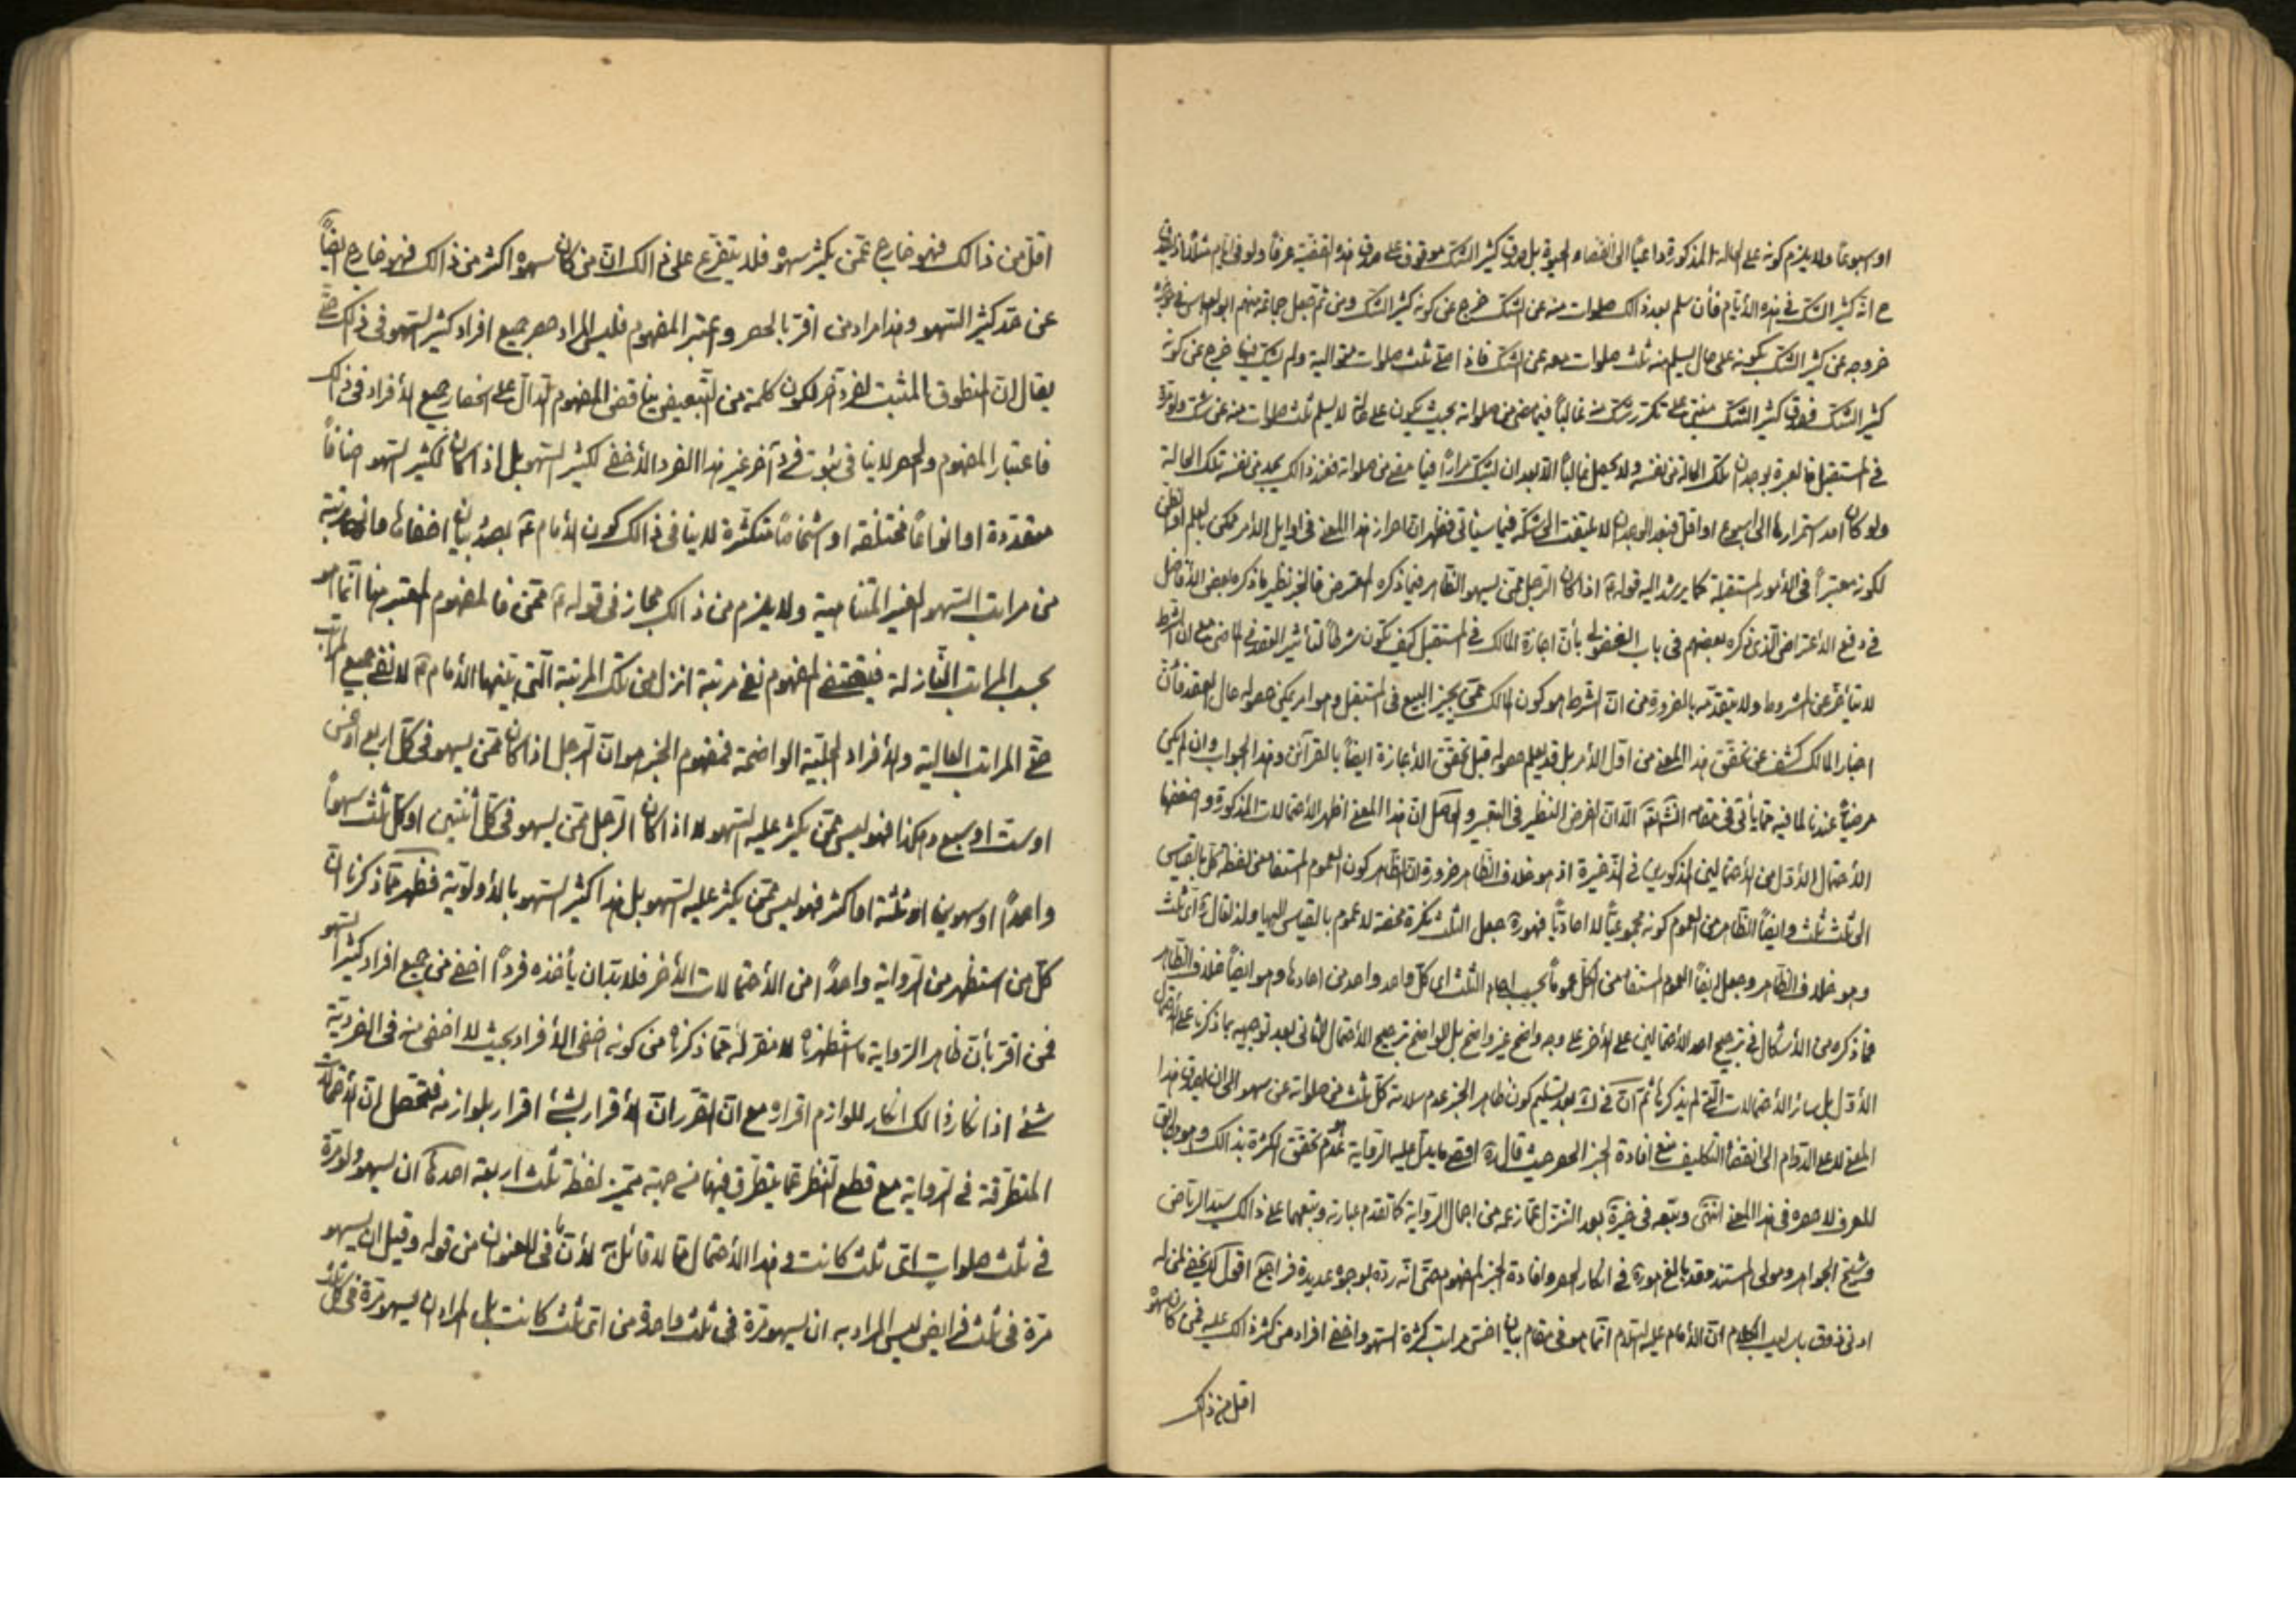 او اسبوعاً ولا يلزم كونه على الحالة المذكورة داعياً الى انقضاء الحيوة بل صدق كثير الشك موقوف على صدق هذه القضية عرفاً ولو فى ايام مثلاً
ح انه كثير الشك فى هذه الأيام فأن سلم بعد ذالك صلوات منه عن الشك خرج عن كونه كثير الشك ومن ثم جعل جماعة منهم ابو العباس فى
خروجه عن كثير الشك بكونه على حال يسلم منه ثلث صلوات معه عن الشك فاذا صلى ثلث صلوات متوالية ولم يشك فيها خرج عن كونه
كثير الشك فصدق كثير الشك مبتنى على تكرر شك منه غالباً فيما مضى من صلواته بحيث يكون على حالة لا يسلم ثلث صلوات منه عن شك ولو مرة
فى المستقبل فالعبرة بوجدان تلك الحالة من نفسه ولا يحصل غالباً الا بعد ان يشك مراراً فيما مضى من صلواته فعند ذالك يجد من نفسه تلك الحالة
ولو كان امد استمرارها الى اسبوع او اقل فبعد الوجدان لا يلتفت الى شكه فيما سيأتى فظهر ان احراز هذا المعنى فى اوايل الأمر ممكن بالعلم او الظن
لكونه معتبراً فى الأمور المستقبلة كما يرشد اليه قوله ع اذا كان الرجل ممن يسهو الظاهر فيما ذكره المعترض فالخبر نظير ما ذكره بعض الأفاضل
فى دفع الأعتراض الذى ذكره بعضهم فى باب الفضولى بأن اجازة المالك فى المستقبل كيف تكون شرطاً لتأثير العقد فى الماضى مع ان الشرط
لا يتأخر عن المشروط ولا يتقدمه بالضرورة من ان الشرط هو كون المالك ممن يجيز البيع فى المستقبل وهو امر يمكن حصوله حال العقد فأن
اختيار المالك كشف عن تحقق هذا المعنى من اول الأمر بل قد يعلم حصوله قبل تحقق الأجازة ايضاً بالقرائن وهذا الجواب وان لم يكن
مرضياً عندنا لما فيه مما يأتى فى مقامه انشاء الله الا ان الغرض التنظير فى التعبير والحاصل ان هذا المعنى اظهر الأحتمالات المذكورة واضعفها
الأحتمال الأول من الأحتمالين المذكورين فى الذخيرة اذ هو خلاف الظاهر ضرورة ان الظاهر كون العموم المستفاد من لفظ كل بالقياس
الى ثلث ثلث وايضاً الظاهر من العموم كونه مجموعياً لا احادياً فهو ره جعل الثلث نكرة محضة لا عموم بالقياس اليها ولذا قال ره اى ثلث
وهو خلاف الظاهر وجعل ايضاً العموم المستفاد من الكل عموماً بحسب احاد الثلث اى كل واحد واحد من احادها وهو ايضاً خلاف الظاهر
فما ذكره من الأشكال فى ترجيح احد الأحتمالين على الأخر على وجه واضح غير واضح بل الواضح ترجيح الأحتمال الثانى بعد توجيهه بما ذكرنا على الأحتمال
الأول بل سائر الأحتمالات التى لم يذكرها ثم ان فى ك بعد تسليم كون ظاهر الخبر عدم سلامة كل ثلث من صلواته عن سهو الى ان يصدق هذا
المعنى لا على الدوام الى انقضاء التكليف منع افادة الخبر الحصر حيث قال ره اقصى ما يدل عليه الرواية عدم تحقق الكثرة بذالك وهو مطابق
للعرف لا حصره فى هذا المعنى انتهى وتبعه فى خيرة بعد التنزل عما زعمه من اجمال الرواية كما تقدم عبارته وتبعهما على ذالك سيد الرياض
وشيخ الجواهر ومولى المستند وقد بالغ هو ره فى انكار الحصر وافادة الخبر المفهوم حتى انه رده بوجوه عديدة فراجع اقول لا يخفى لمن له
ادنى ذوق باساليب الكلام ان الأمام عليه السلام انما هو فى مقام بيان اخسّ مراتب كثرة السهو واخفى افراد من كثرة الك عليه فمن كان سهوه
اقل من ذالك
اقل من ذالك فهو خارج عمن يكثر سهوه فلا يتفرع على ذالك ان من كان سهوه اكثر من ذالك فهو خارج ايضاً
عن حد كثير السهو وهذا مراد من اقر بالحصر واعتبر المفهوم فليس المراد حصر جميع افراد كثير السهو فى ذالك حتى
يقال ان المنطوق المثبت لفرد آخر لكون كلمة من للتبعيض يناقض المفهوم الدال على انحصار جميع الأفراد فى ذالك
فاعتبار المفهوم والحصر لا ينافى ثبوت فرد آخر غير هذا الفرد الأخفى لكثير السهو بل اذا كان لكثير السهو اصنافاً
متعددة او انواعاً مختلفة او اشخاصاً متكثرة لا ينافى ذالك كون الأمام ع بصدد بيان اخفاها وادنى مرتبة
من مراتب السهو الغير المتناهية ولا يلزم من ذالك مجاز فى قوله ع ممن فالمفهوم المعتبر هنا انما هو
بحسب المراتب النازلة فيقتضى المفهوم نفى مرتبة انزل من تلك المرتبة التى بينها الأمام ع لا نفى جميع المراتب
حتى المراتب العالية والأفراد الجلية الواضحة فمفهوم الخبر هو ان الرجل اذا كان ممن يسهو فى كل اربع او خمس
او ست او سبع وهكذا فهو ليس ممن يكثر عليه السهو لا اذا كان الرجل ممن يسهو فى كل اثنتين او كل ثلث سهواً
واحداً او سهوين او ثلثة او اكثر فهو ليس ممن يكثر عليه السهو بل هذا كثير السهو بالأولوية فظهر مما ذكرنا ان
كل من استظهر من الرواية واحداً من الأحتمالات الأخر فلا بد ان يأخذه فرداً اخفى من جميع افراد كثير السهو
فمن اقر بأن ظاهر الرواية ما استظهرناه لا مفر له مما ذكرناه من كونه اخفى الأفراد بحيث لا اخفى منه فى الفردية
شئ اذ انكار ذالك انكار للوازم اقراره مع ان المقرر ان الأقرار بشئ اقرار بلوازمه فتحصل ان الأحتمالات
المتطرقة فى الرواية مع قطع النظر عما يتطرق فيها من جهة متميز لفظة ثلث اربعة احدها ان يسهو ولو مرة
فى ثلث صلوات اى ثلث كانت وهذا الأحتمال مما لا قائل به لأن ما فى العنوان من قوله وقيل ان يسهو
مرة فى ثلث فرايض ليس المراد به ان يسهو مرة فى ثلث واحدة من اى ثلث كانت بل المراد ان يسهو مرة فى كل ثلث